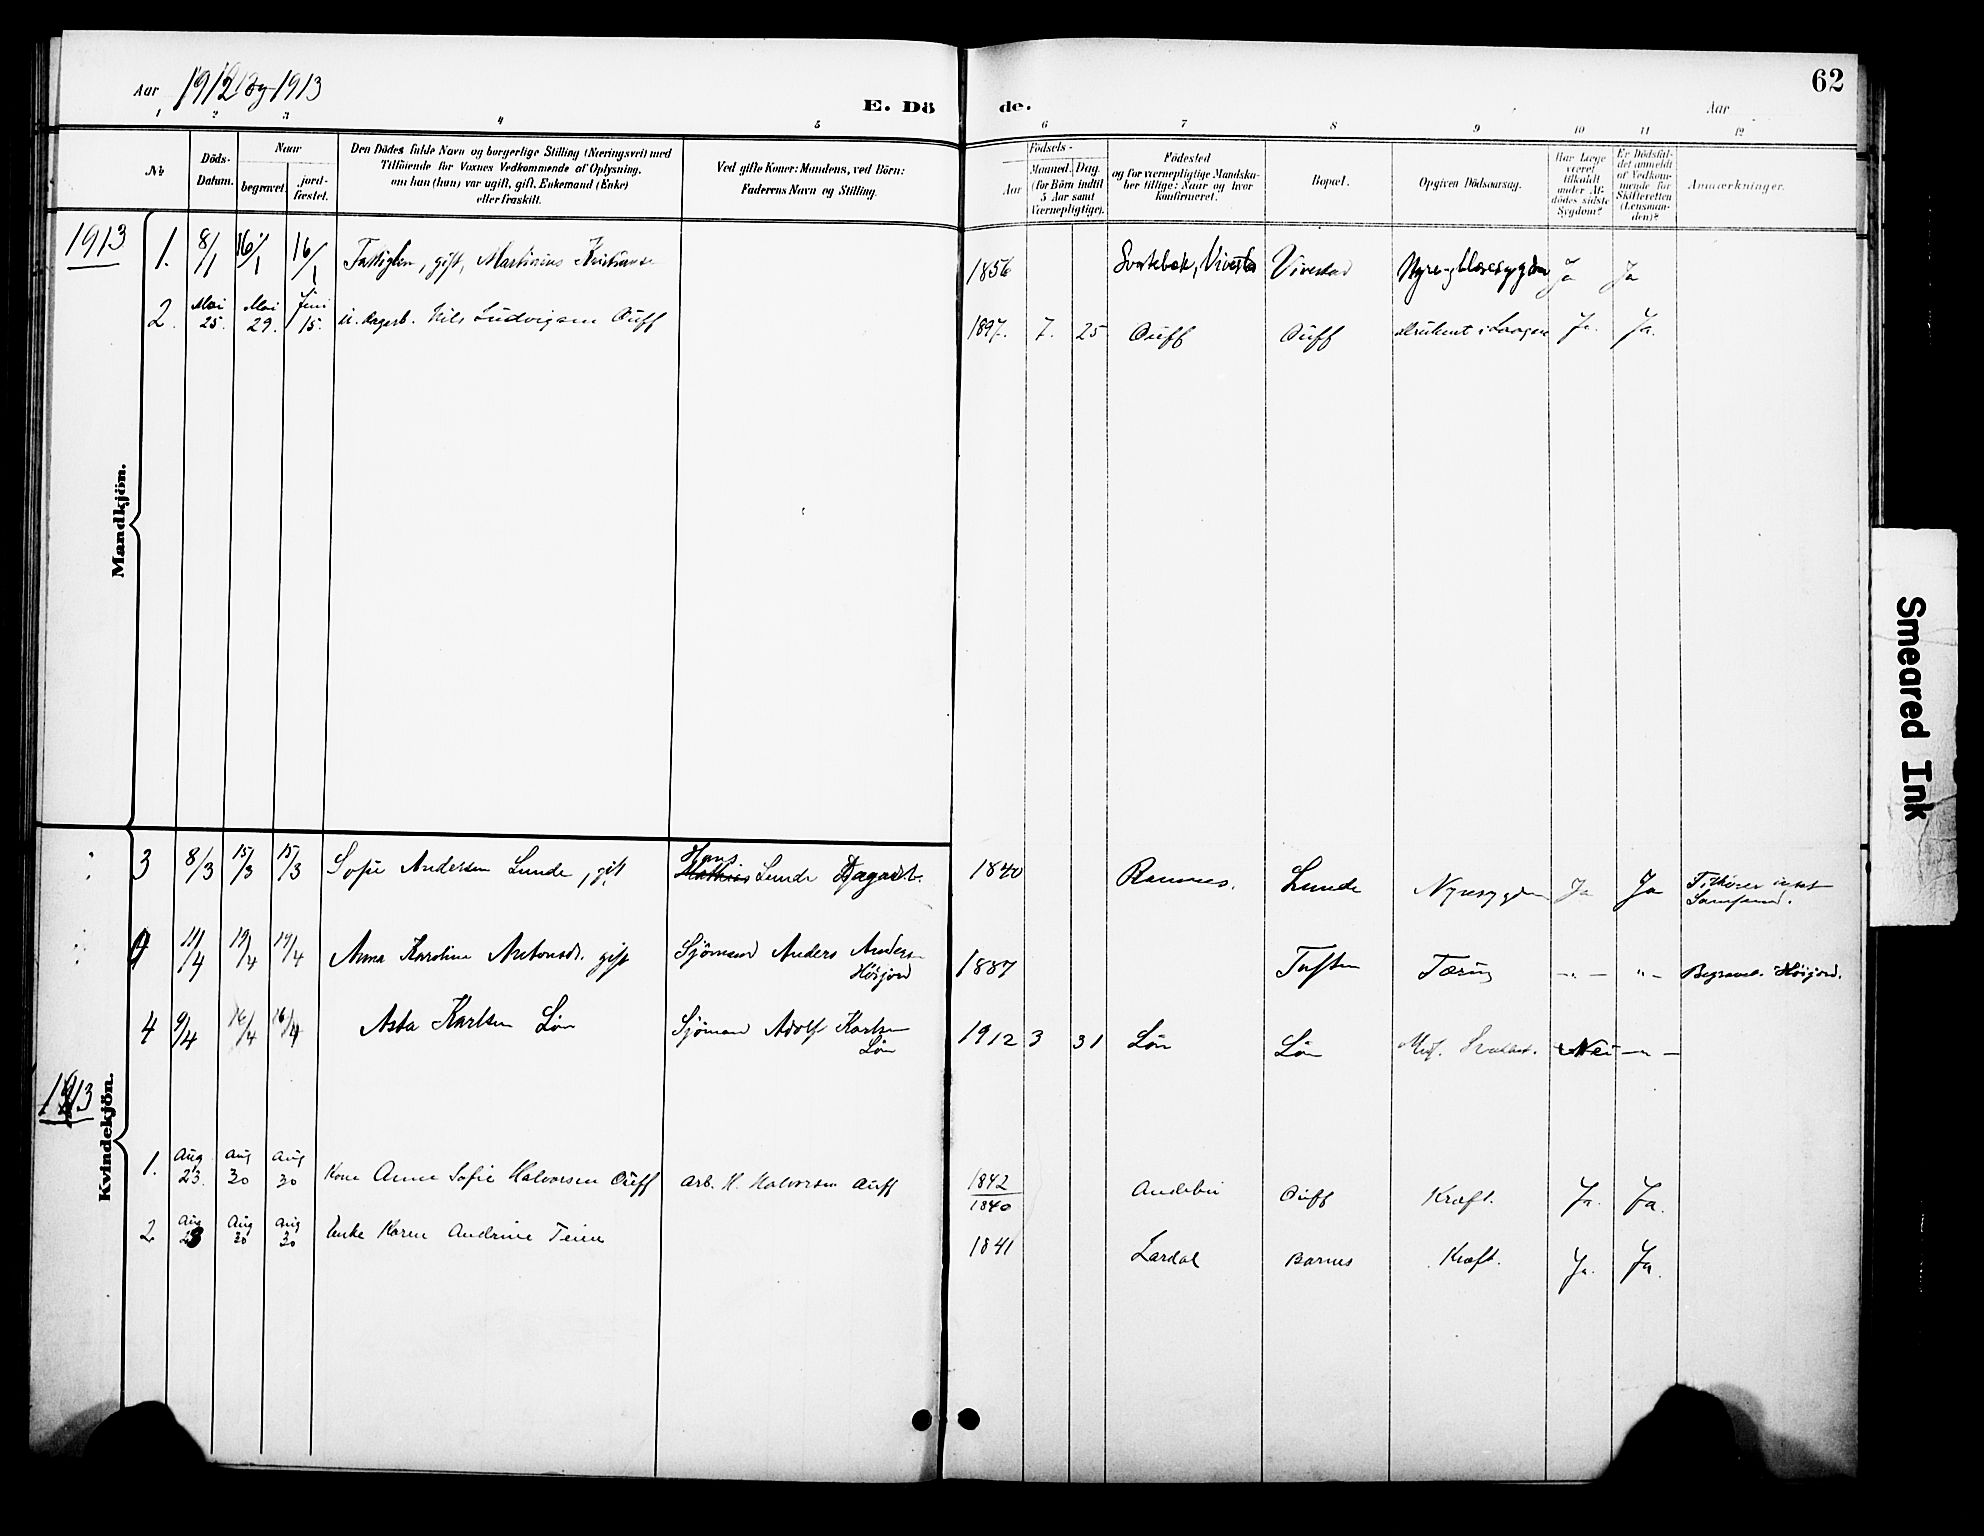 62
Aar 1912 og 1913
E. Dö de.
Aar
1 2 3 4 5 6 7 8 9 10 11 12
No
Döds-
Datum.
Naar
begravet.
jord-
fæstet.
Den Dödes fulde Navn og borgerlige Stilling (Næringsvei) med
Tilföiende for Voxnes Vedkommende af Oplysning,
om han (hun) var ugift, gift, Enkemand (Enke)
eller fraskilt.
Ved gifte Koner: Mandens, ved Börn:
Faderens Navn og Stilling.
Födsels-
Aar
Maaned. Dag.
(for Börn indtil
5 Aar samt
Værnepligtige).
Födested
og for værnepligtige Mandska-
ber tillige: Naar og hvor
konfirmeret.
Bopæl.
Opgiven Dödsaarsag.
Har Læge
været
tilkaldt
under Af-
dödes sidste
Sygdom?
Er Dödsfal-
det anmeldt
af Vedkom-
mende for
Skifteretten
(Lensman-
den)?
Anmærkninger.
1913
Mandkjön.
1. 8/1 16/1 16/1 gift, Martinius 1856 Vivestad Ja Ja
2. Mai 25. Mai 29. Juni 15. Nils Ludvigsen Auff 1897. 7. 25 Auff Auff druknet i Laagen Ja. Ja.
3 8/3 15/3 15/3 Sofie Andersen Lunde, gift Hans Mathias Lunde 1840 Ramnes. Lunde Nyresygdom Ja Ja
4 11/4 19/4 19/4 Anna Karoline Antonsdt. gift Sjömand Anders Anders
Höijord 1887 Taften Tæring — " — " — Begravet i Höijord.
4 9/4 16/4 16/4 Asta Karlsen Lön Sjömand Adolf Karlsen
Lön 1912 3 31 Lön Lön Nei — " —
1913
Kvindekjön.
1. Aug 23. Aug 30 Aug 30 Kone Anne Sofie Halvorsen Auff Arb. H. Halvorsen Auff 1842
1840 Andebu Auff Kræft. Ja. Ja.
2 Aug 23 Aug 30 Aug 30 Enke Karen Andrine Teien 1841 Lardal Barnes Kræft. Ja. Ja.
Smeared Ink